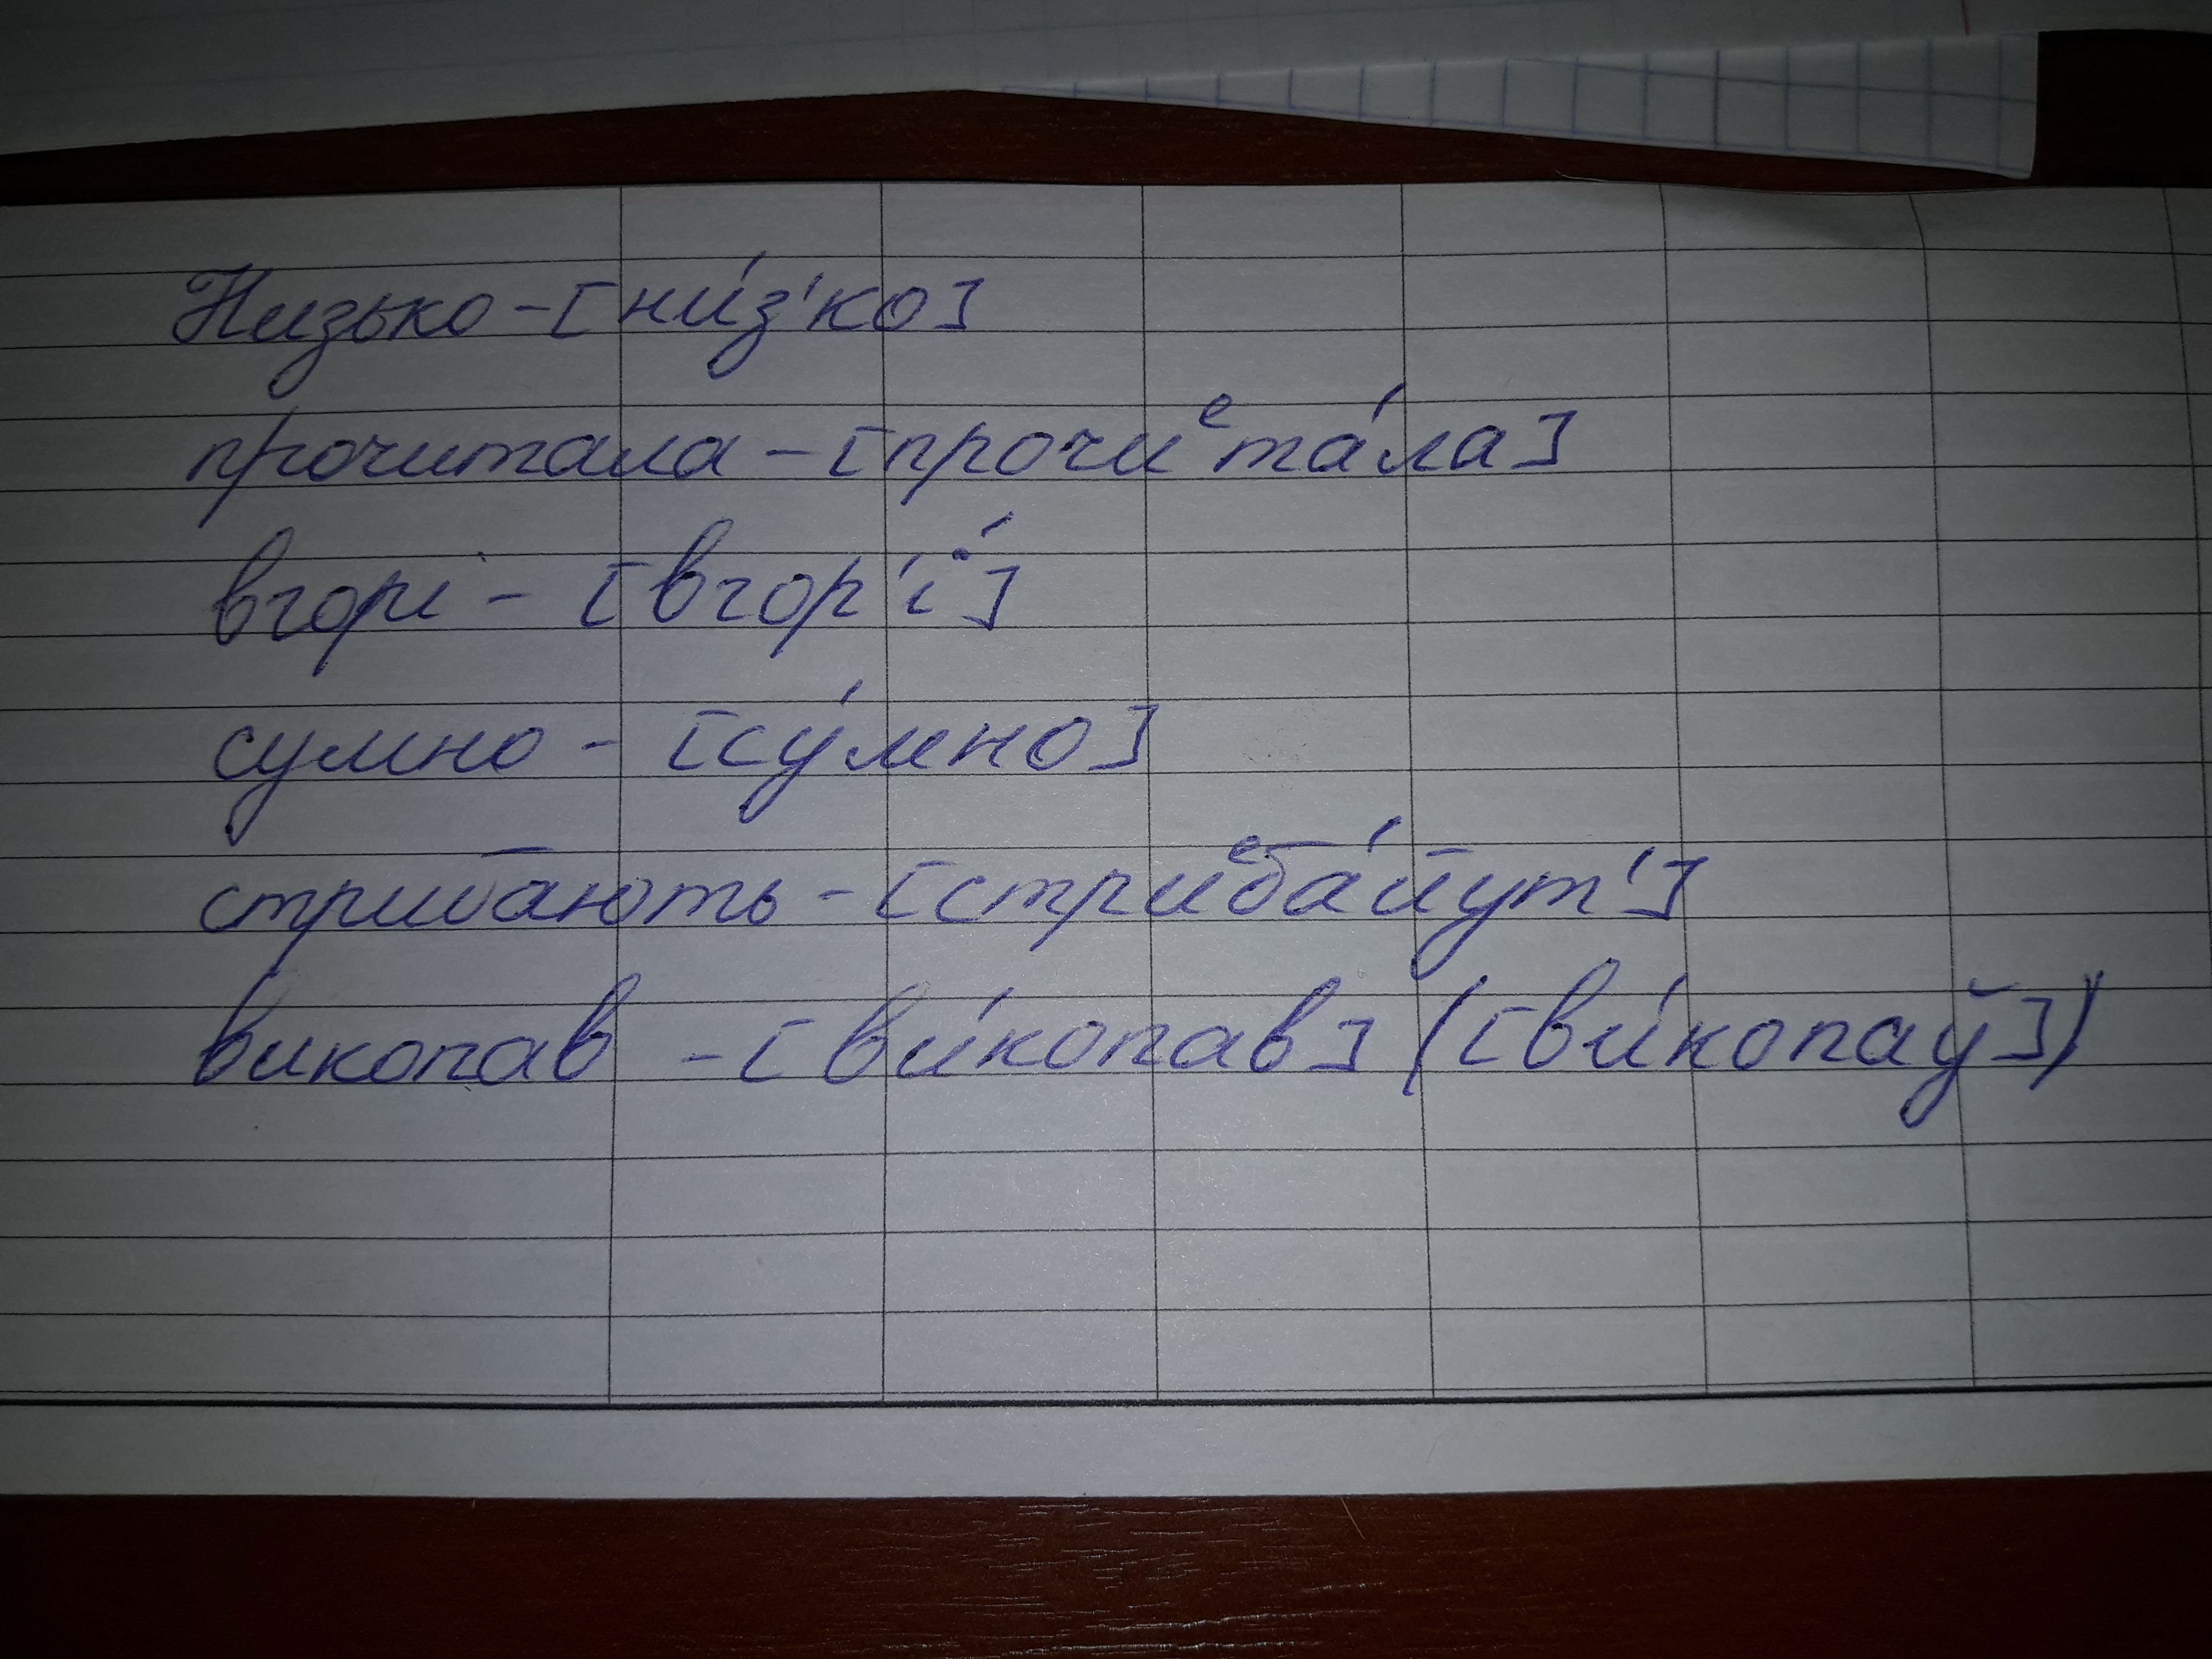 Низько - [ни́з'ко]
прочитала - [прочиᵉта́ла]
вгорі - [вгор'і́]
сумно - [су́мно]
стрибають - [стриᵉба́йут']
викопав - [ви́копав] ([ви́копаў])